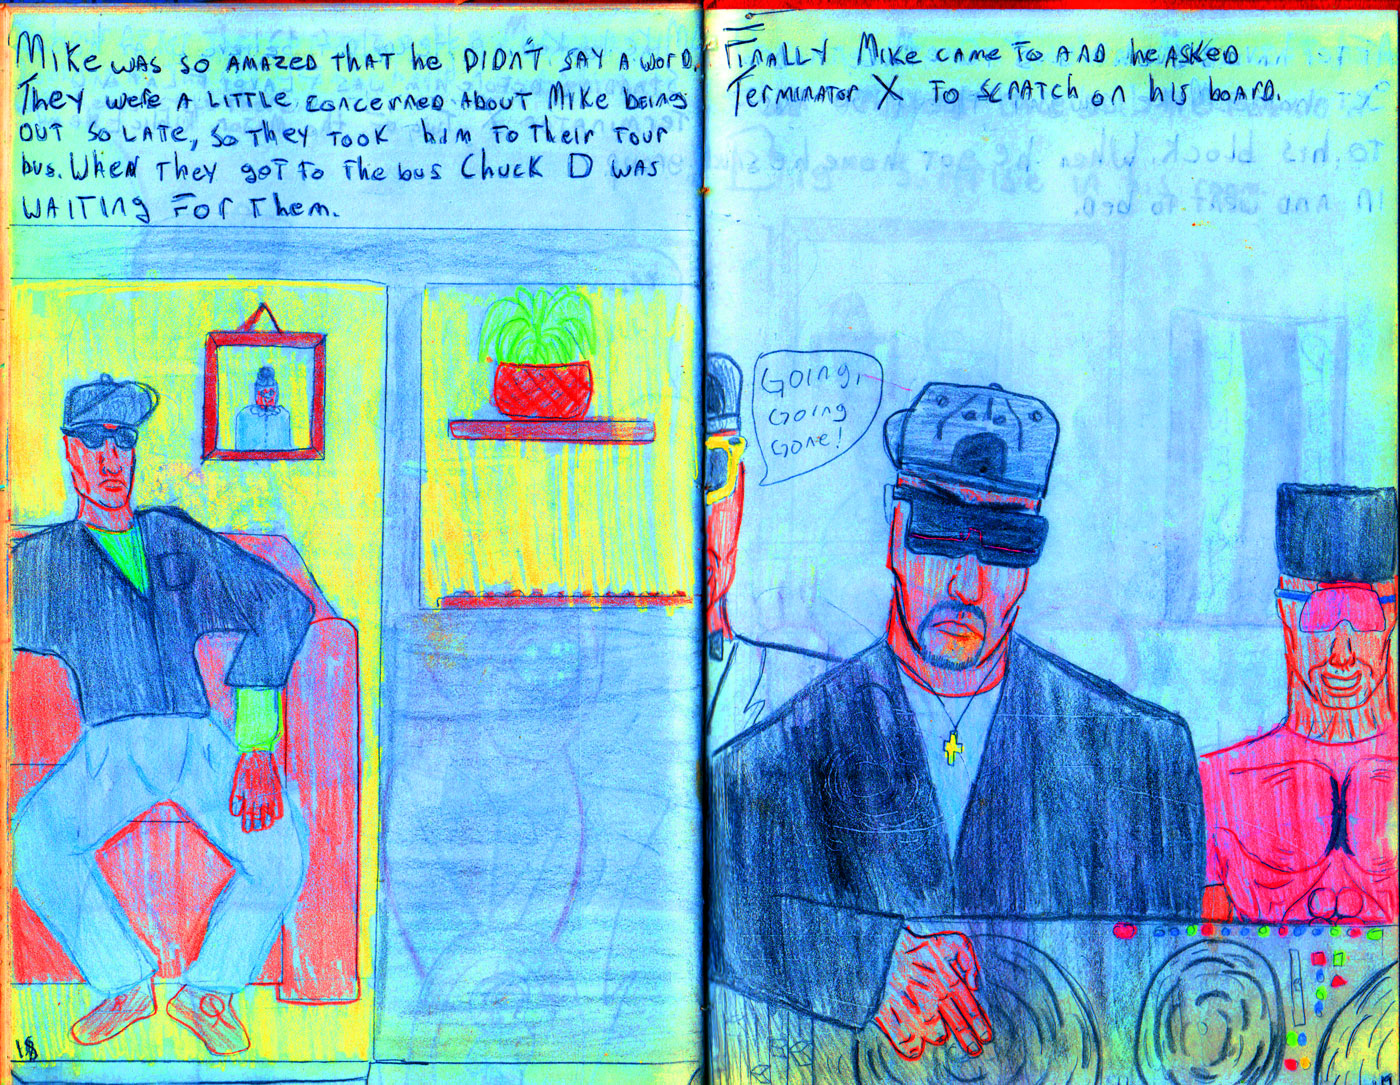 Mike was so amazed that he didn't say a word.
They were a little concerned about Mike being
out so late, so they took him to their tour
bus. When they got to the bus Chuck D was
waiting for them.
18
Finally Mike came to and he asked
Terminator X to scratch on his board.
Going,
going
gone!